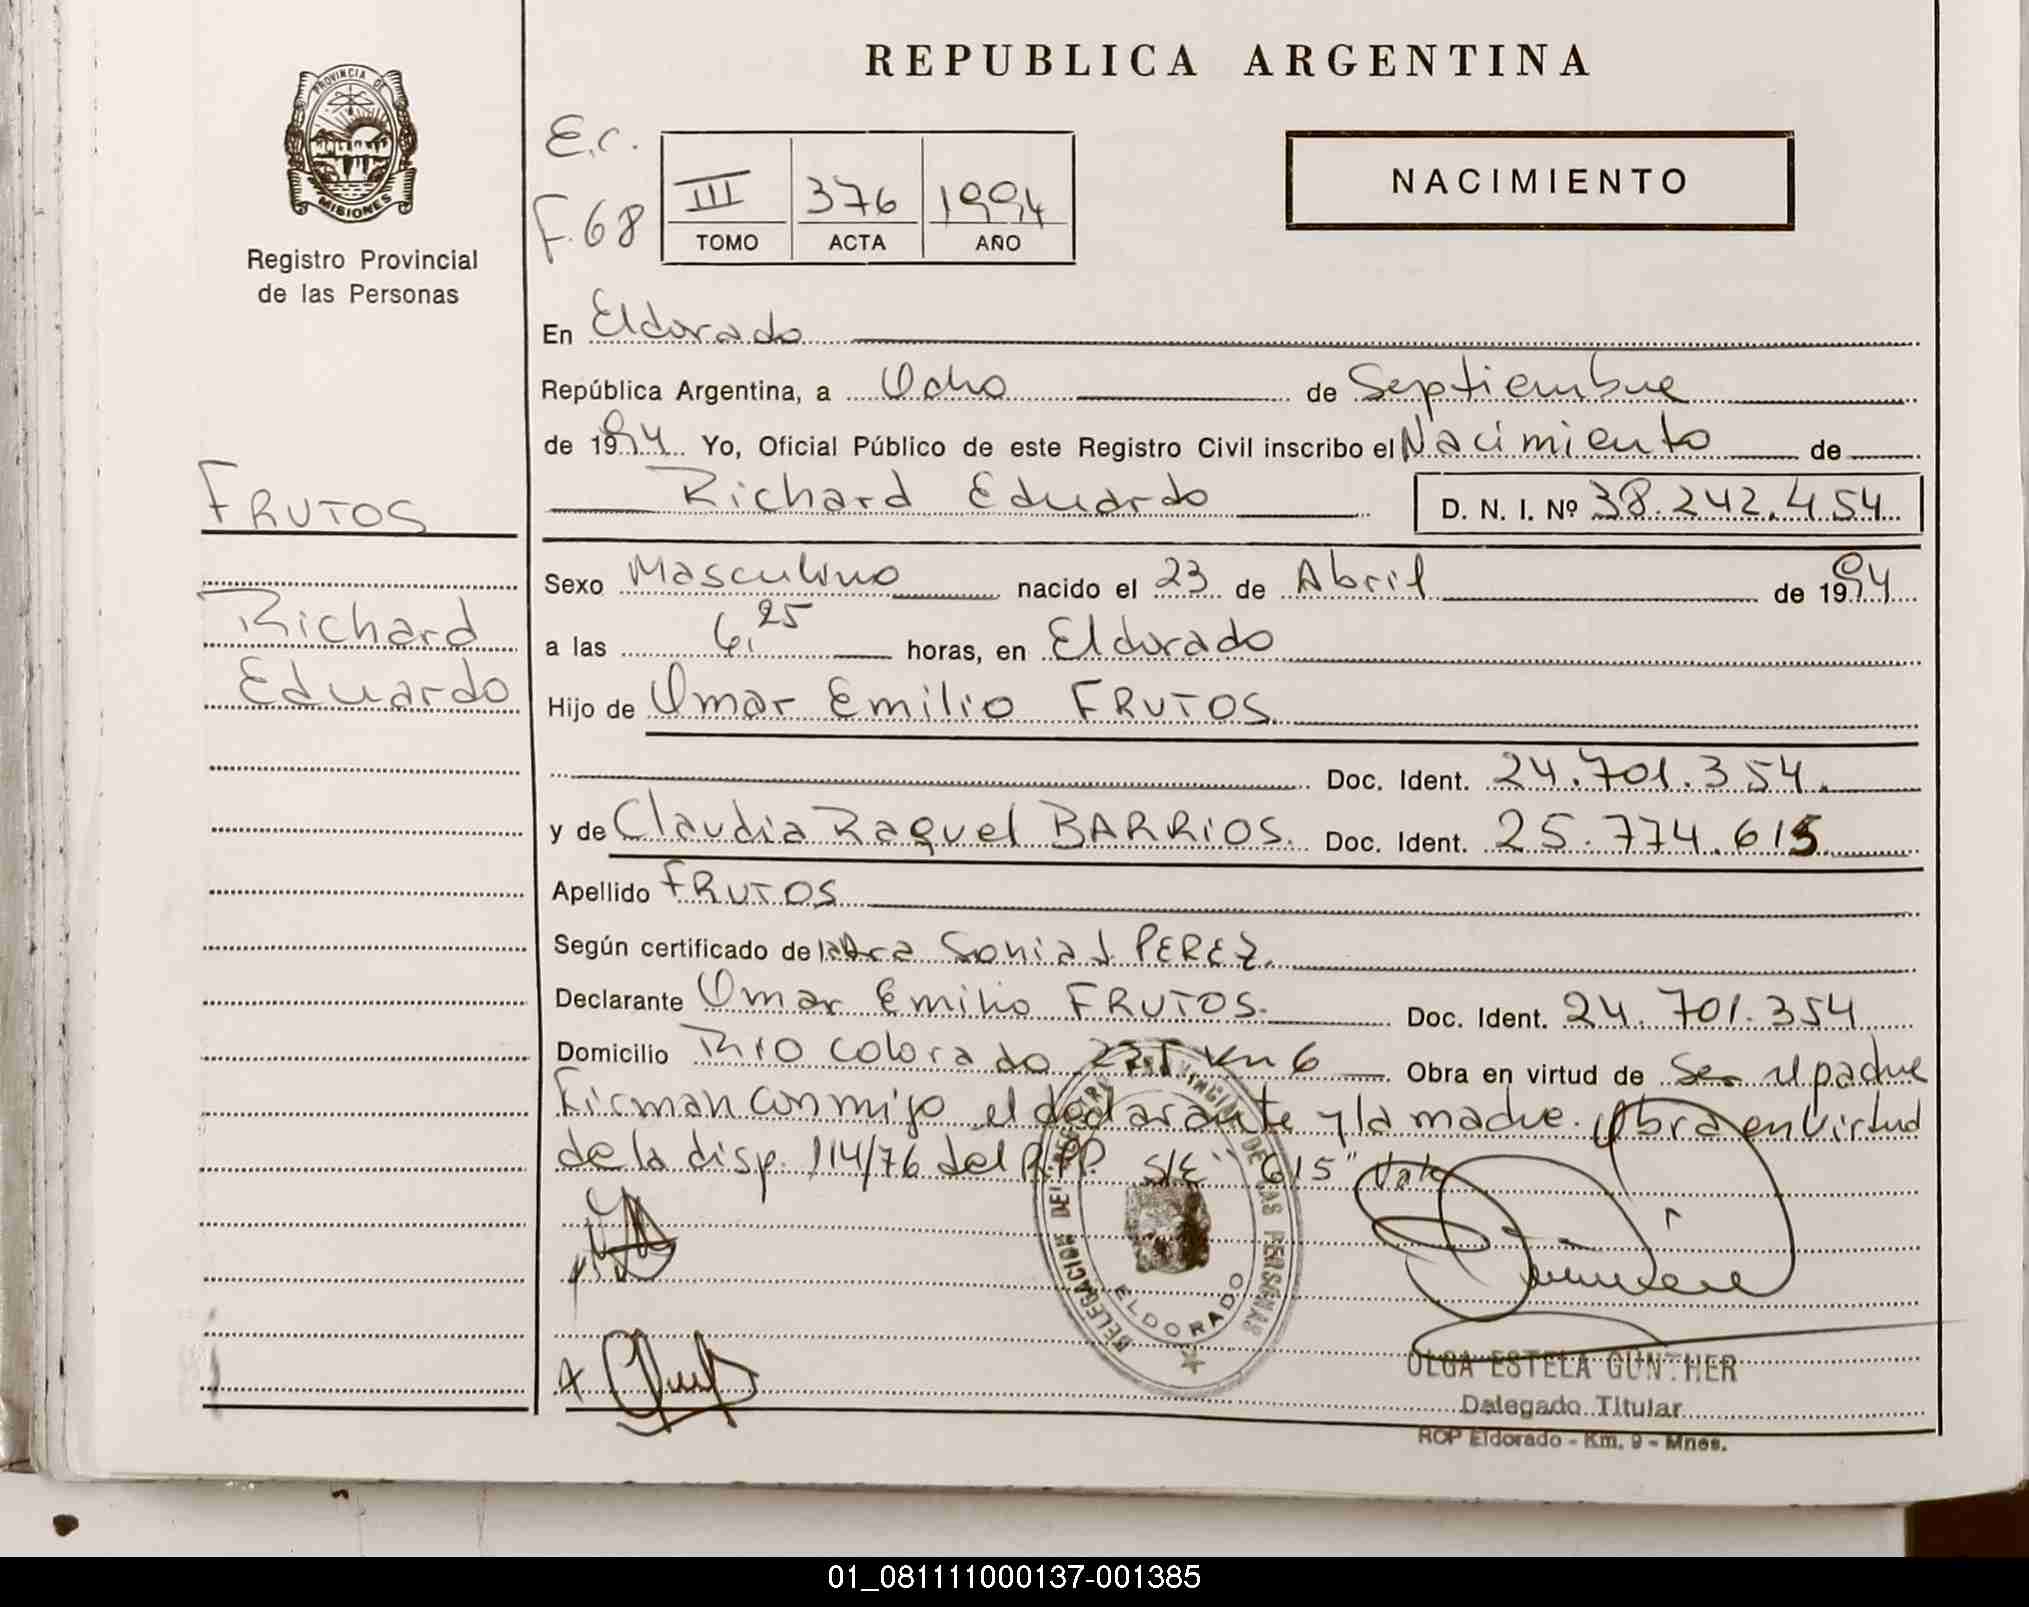 REPUBLICA ARGENTINA
PROVINCIA DE
MISIONES
Registro Provincial
de las Personas
E.C.
F.68
III 376 1994
TOMO ACTA AÑO
NACIMIENTO
En Eldorado
República Argentina, a Ocho de Septiembre
de 1994 Yo, Oficial Público de este Registro Civil inscribo el Nacimiento de
Richard Eduardo D. N. I. Nº 38.242.454
FRUTOS
Richard
Eduardo
Sexo Masculino nacido el 23 de Abril de 1994
a las 6,25 horas, en Eldorado
Hijo de Omar Emilio FRUTOS
Doc. Ident. 24.701.354.
y de Claudia Raquel BARRIOS. Doc. Ident. 25.774.615
Apellido FRUTOS
Según certificado de la Dra Sonia J PEREZ.
Declarante Omar Emilio FRUTOS. Doc. Ident. 24.701.354
Domicilio Rio Colorado Km 6 Obra en virtud de Ser el padre
Firman conmigo el declarante y la madre. Obra en Virtud
de la disp. 114/76 del R.P.P. S/E "615" Vale
DELEGACION DEL REGISTRO PROVINCIAL DE LAS PERSONAS
ELDORADO
OLGA ESTELA GUNTHER
Delegado Titular
RCP Eldorado - Km. 9 - Mnes.
01_081111000137-001385